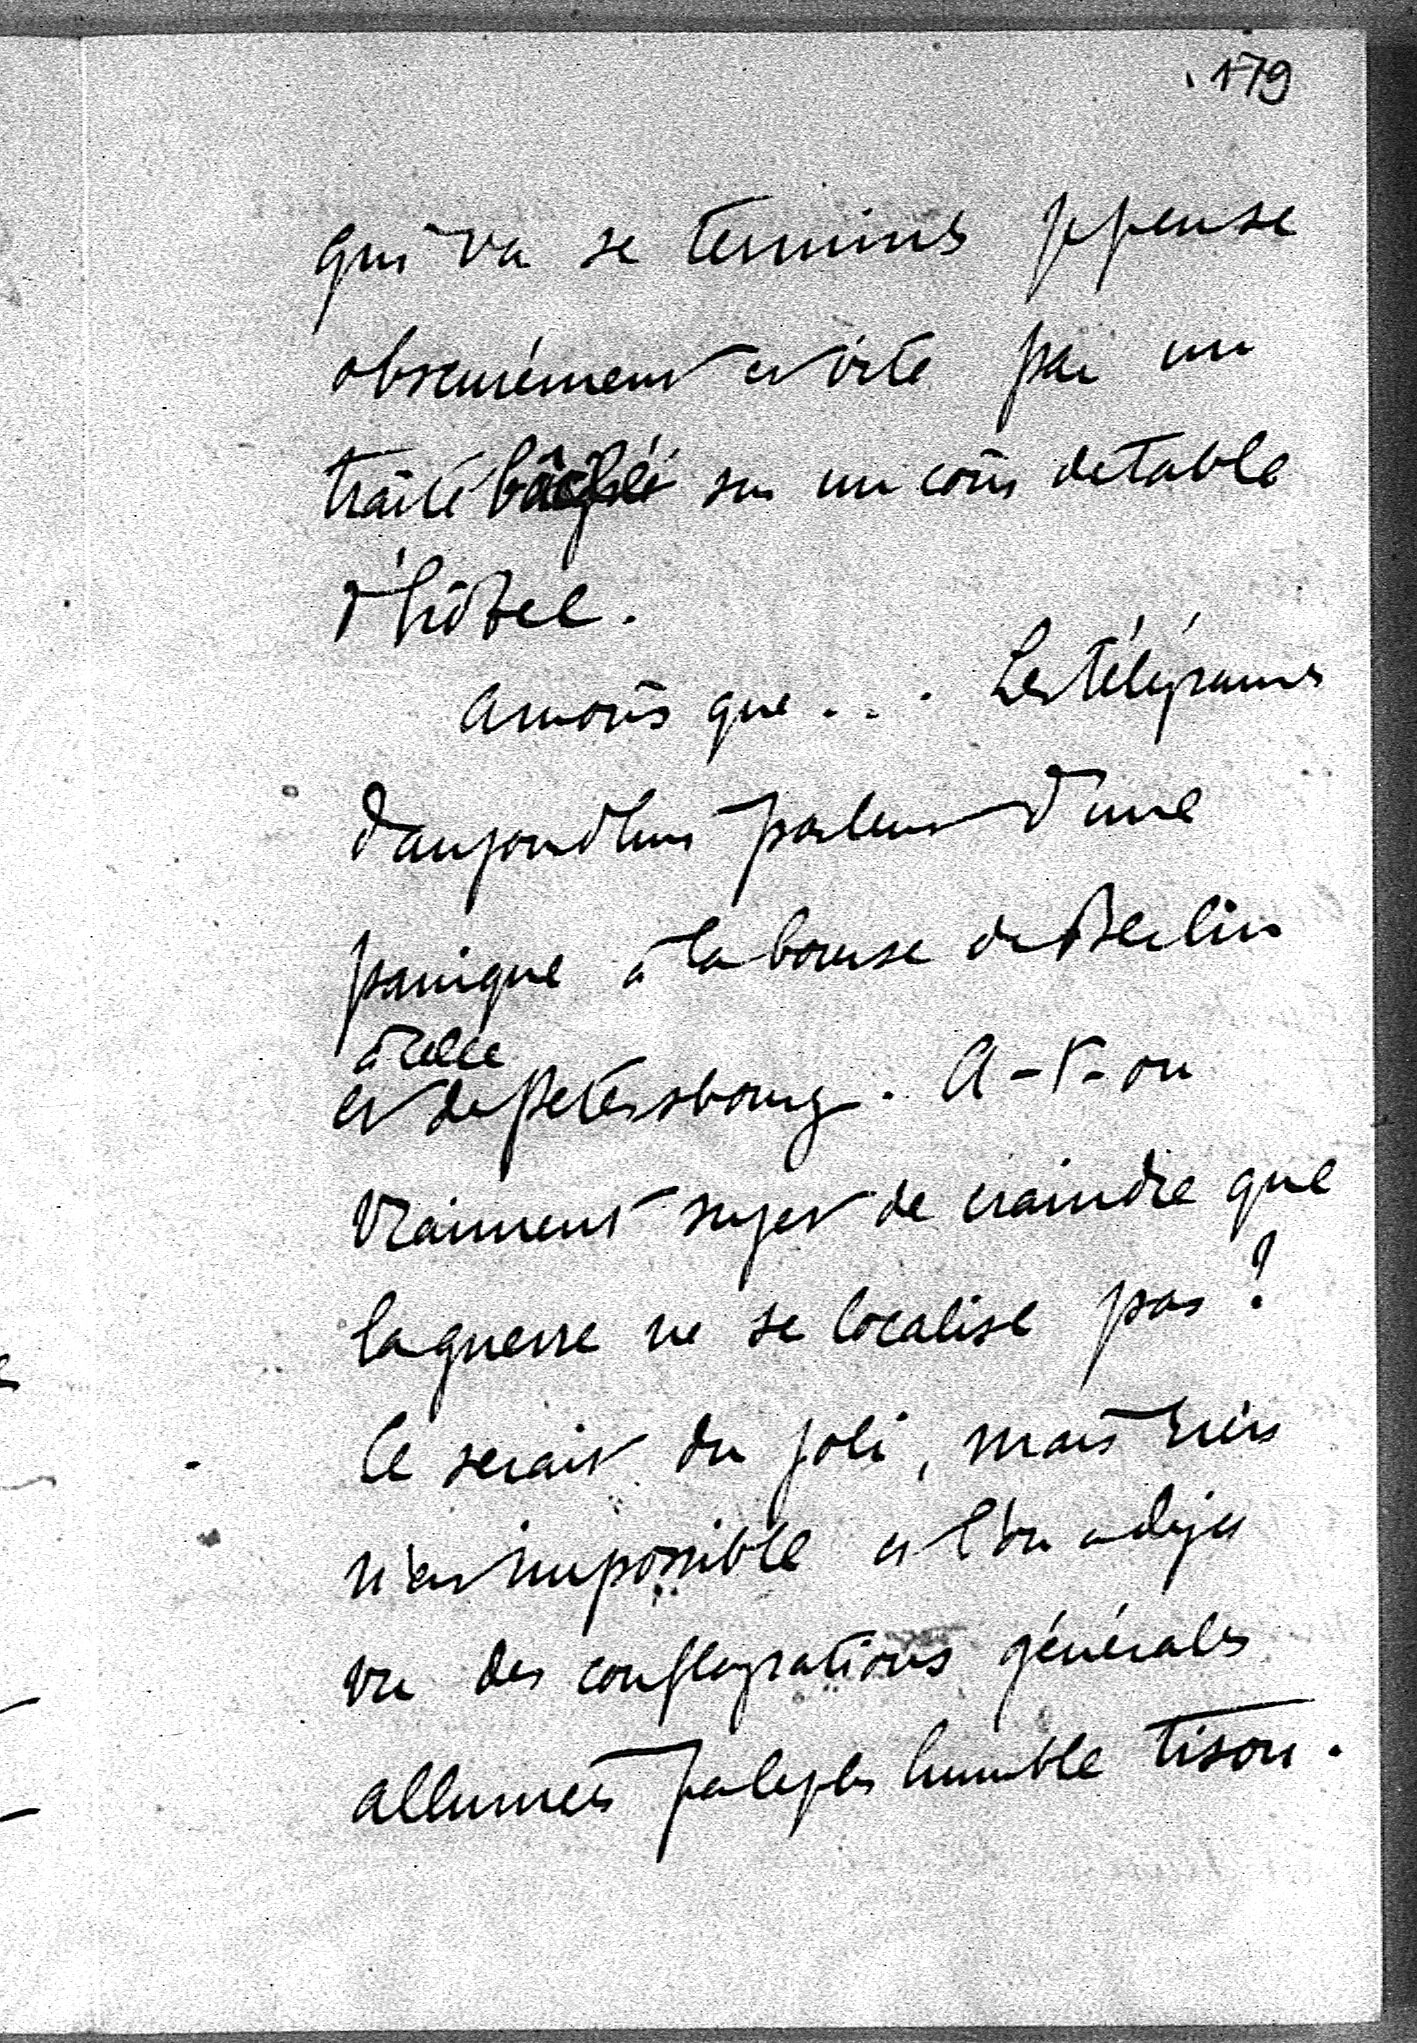 179
qui va se terminer je pense
obscurément et vite par un
traité bâclé sur un coin de table
d'hôtel.
A moins que... Les télégrammes
d'aujourd'hui parlent d'une
panique à la bourse de Berlin
à celle
et de Petersbourg. A-t-on
vraiment sujet de craindre que
la guerre ne se localise pas?
Ce serait du joli, mais rien
n'est impossible et l'on a déjà
vu des conflagrations générales
allumées par le plus humble tison.